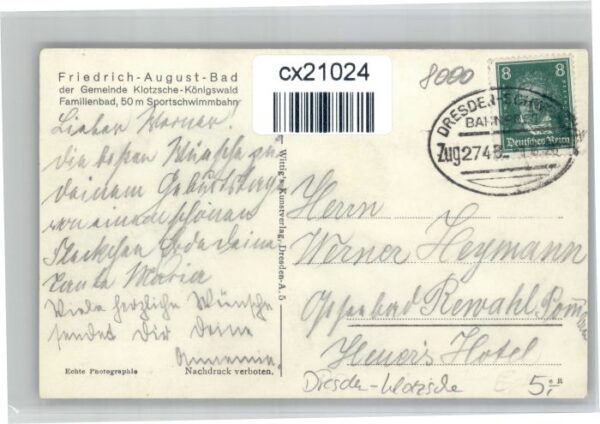 Friedrich-August-Bad
der Gemeinde Klotzsche-Königswald
Familienbad, 50 m Sportschwimmbahn
cx21024
8000
8 8
Deutsches Reich
DRESDEN-
BAHNPOST
Zug 274
Lieber Werner!
die besten Wünsche zu
deinem Geburtstag
von einem schönen
Fleckchen Erde deine
Tante Maria
Viele herzliche Wünsche
sendet dir deine
Annemie.
Wittig's Kunstverlag, Dresden-A. 5
Herrn
Werner Heymann
Ostseebad Rewahl, Pom
Heuer's Hotel
Echte Photographie Nachdruck verboten.
Dresden-Klotzsche
5,-